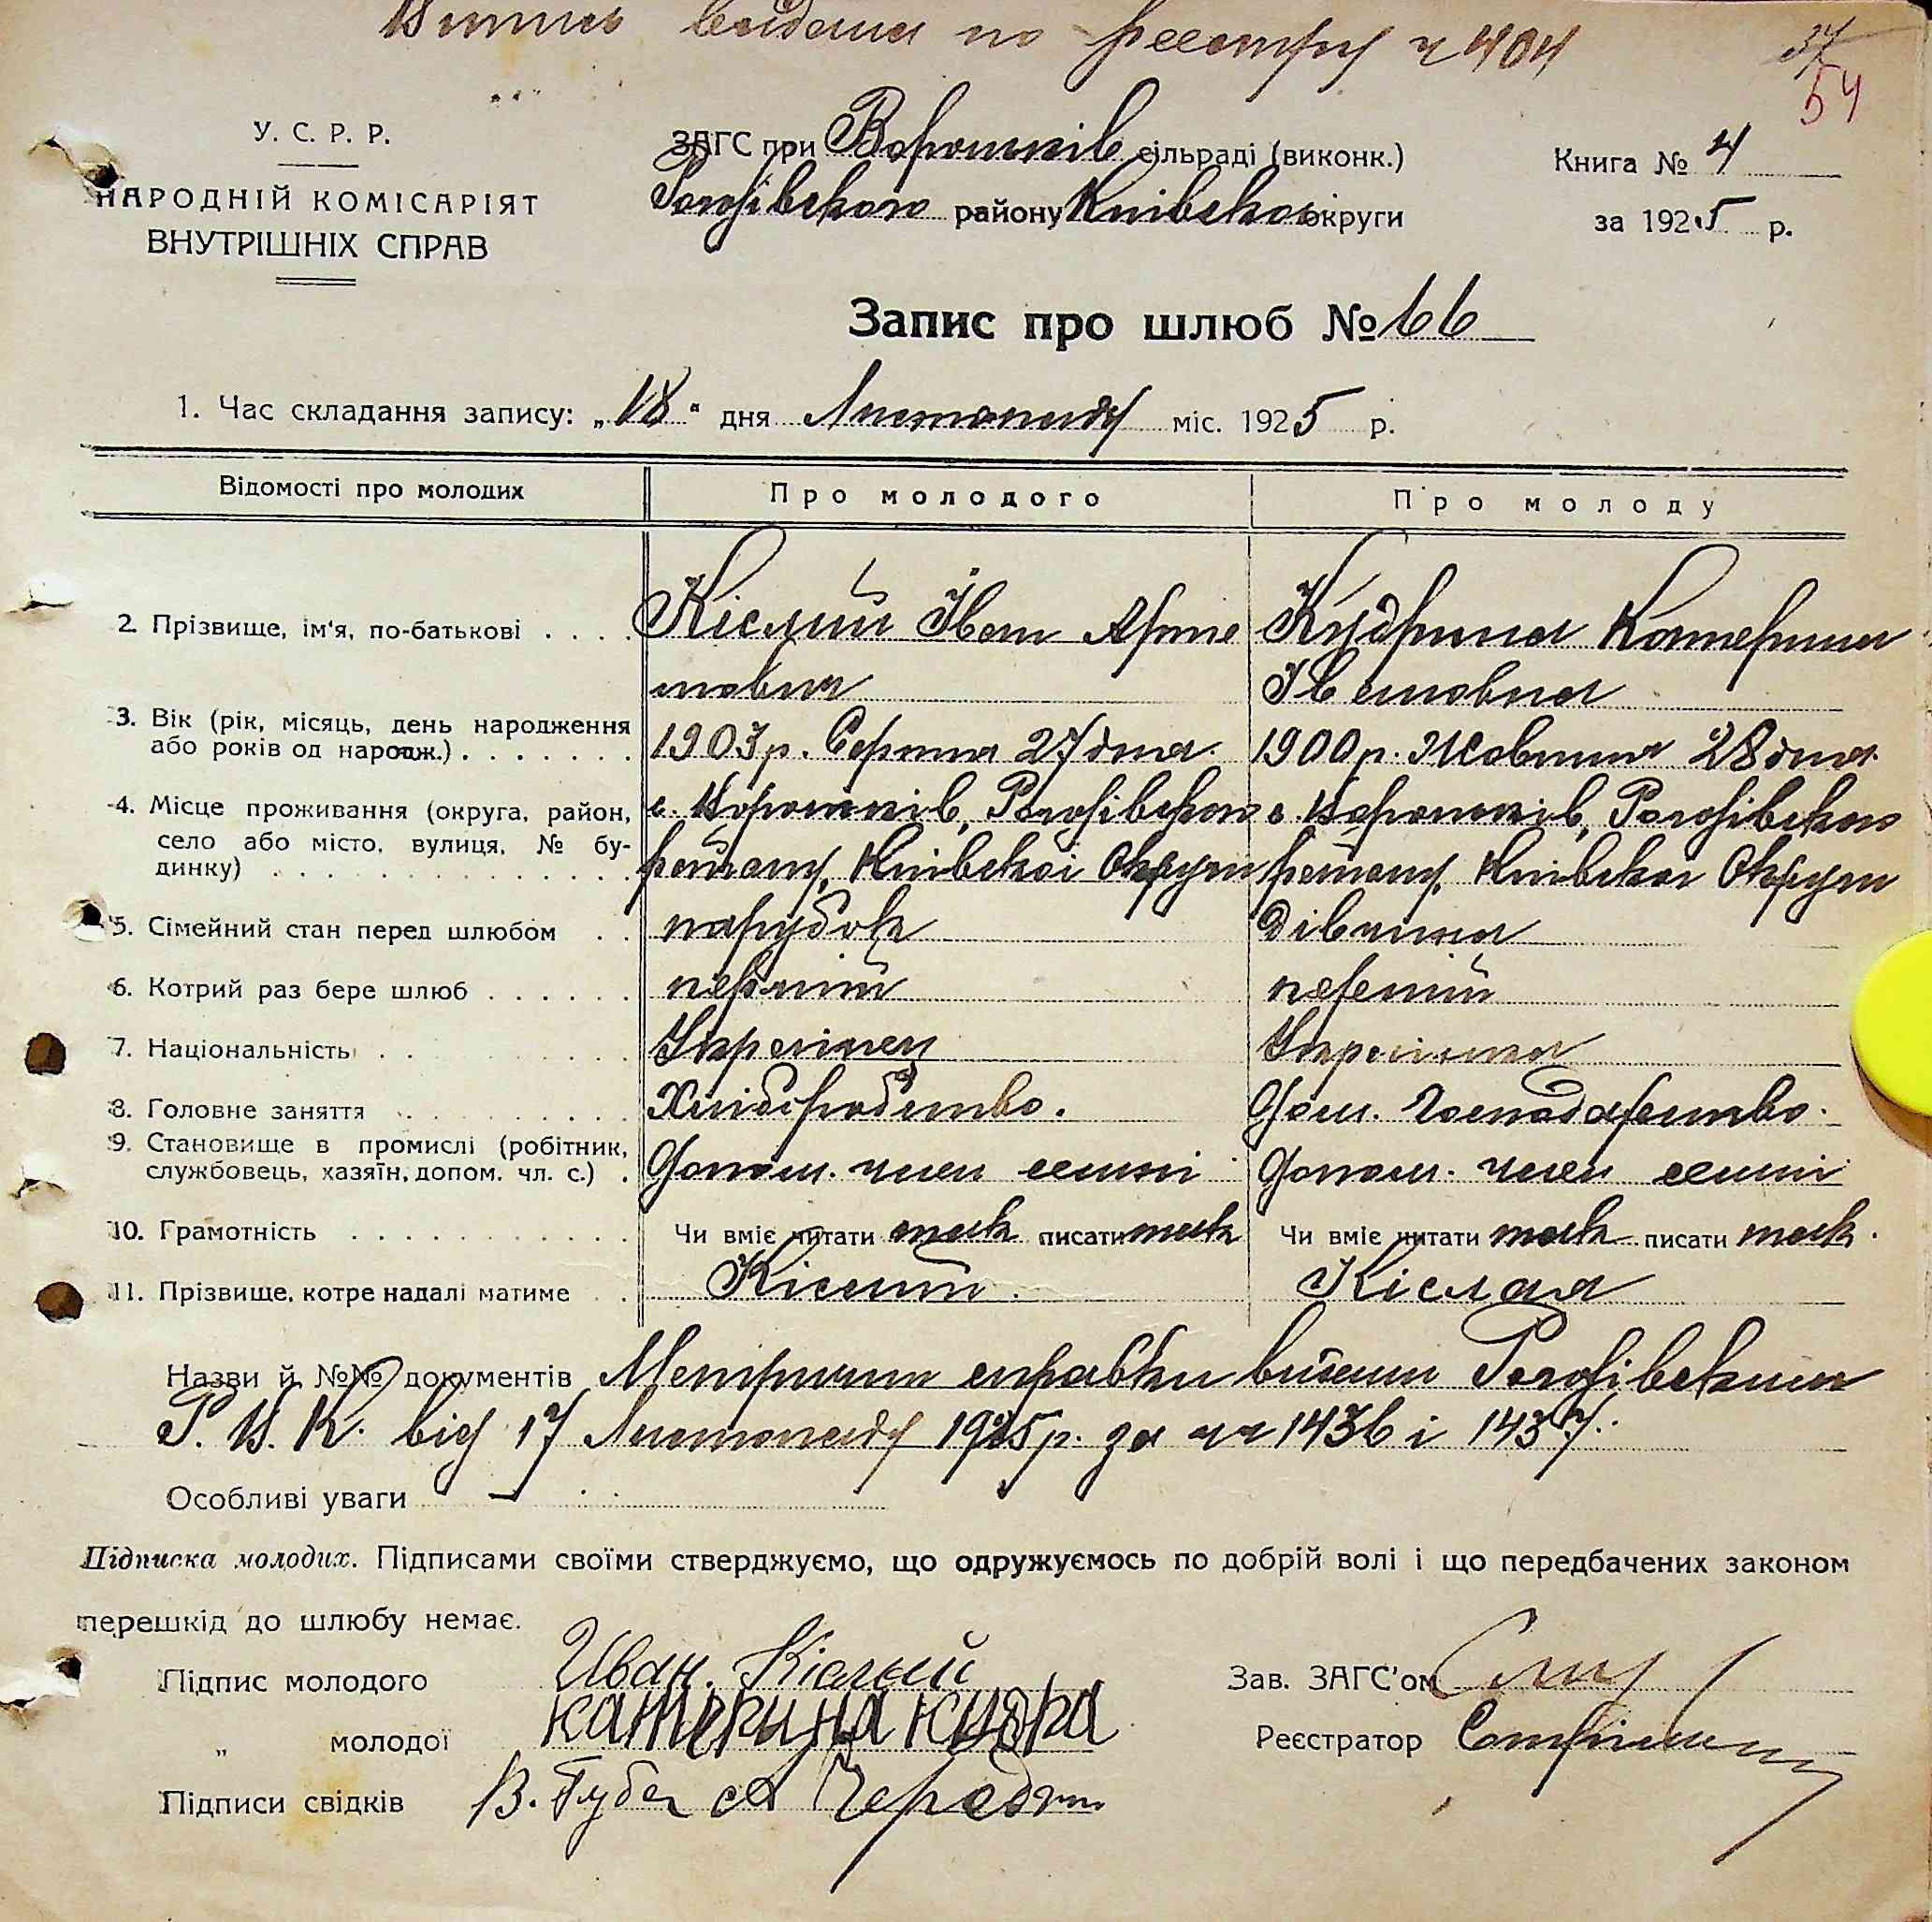 Витяг видани по реєстру ч 404
37
54
У. С. Р. Р.
НАРОДНІЙ КОМІСАРІЯТ
ВНУТРІШНІХ СПРАВ
ЗАГС при Воронків сільраді (виконк.)
Рогозівского району Київськоі округи
Книга № 4
за 1925 р.
Запис про шлюб № 66
1. Час складання запису: „18" дня Листопаду міс. 1925 р.
Відомості про молодих
Про молодого
Про молоду
2. Прізвище, ім'я, по-батькові
Кіслий Іван Арте
мович
Кудрина Катерина
Івановна
3. Вік (рік, місяць, день народження
або років од нарощж.)
1903 р. Серпня 27 дня.
1900 р. Жовтня 28 дня.
4. Місце проживання (округа, район,
село або місто, вулиця, № бу-
динку)
с. Воронків, Рогозівского
району, Київскоі Округи
с. Воронків, Рогозівского
району, Київскоі Округи
5. Сімейний стан перед шлюбом
парубок
дівчина
6. Котрий раз бере шлюб
перший
перший
7. Національність
Украінец
Украінка
8. Головне заняття
Хліборобство.
Дом. Господарство.
9. Становище в промислі (робітник,
службовець, хазяїн, допом. чл. с.)
Допом. член семпі
Допом. член семпі
10. Грамотність
Чи вміє читати так писати так
Чи вміє читати так писати так.
11. Прізвище, котре надалі матиме
Кіслий.
Кіслая
Назви й №№ документів Метричні справки видани Рогозівским
Р. В. К. від 17 Листопаду 1925 р. за чч 1436 і 1437.
Особливі уваги —
Підписка молодих. Підписами своїми стверджуємо, що одружуємось по добрій волі і що передбачених законом
перешкід до шлюбу немає.
Підпис молодого Иван. Кіслий
„ молодої катерина кудра
Підписи свідків В. Губа А
Зав. ЗАГС'ом
Реєстратор